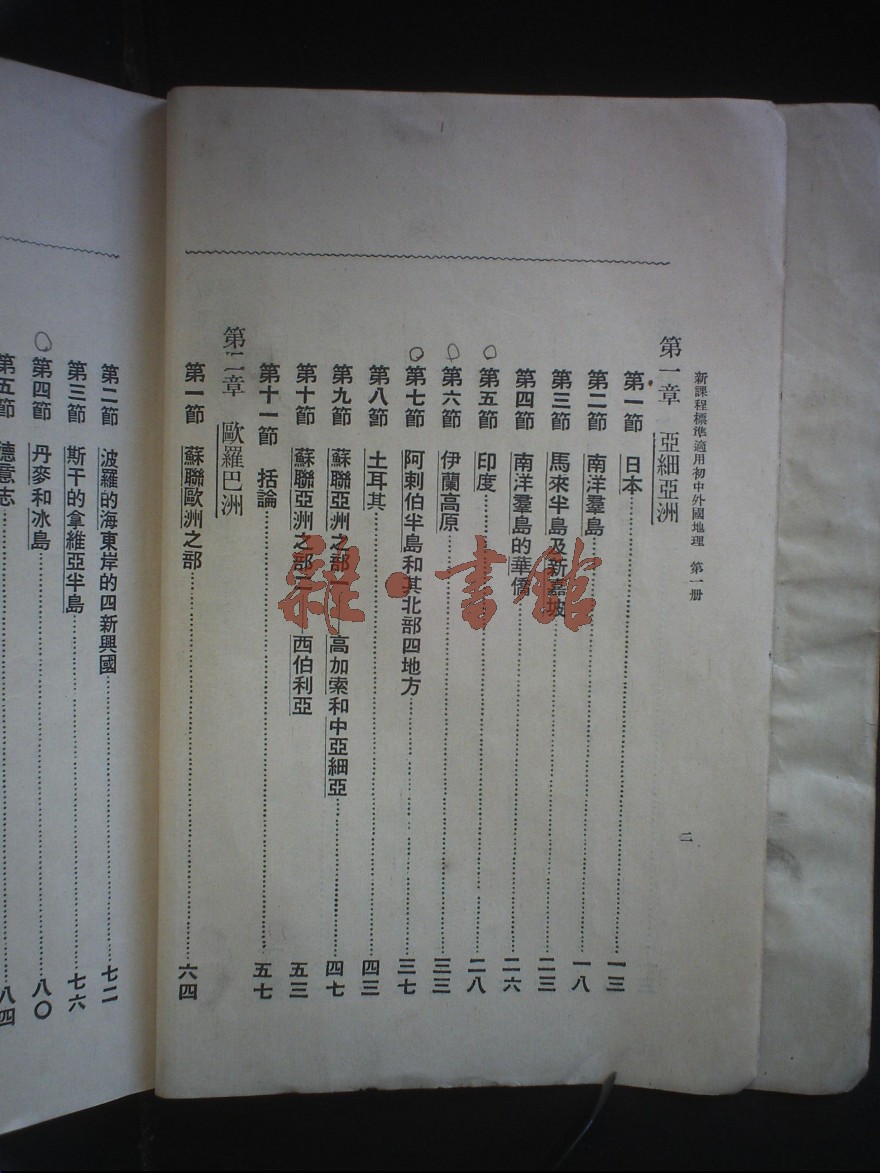 新課程標準適用初中外國地理 第一册
二
第一章 亞細亞洲
第一節 日本……一三
第二節 南洋羣島……一八
第三節 馬來半島及新嘉坡……二三
第四節 南洋羣島的華僑……二六
第五節 印度……二八
第六節 伊蘭高原……三三
第七節 阿剌伯半島和其北部四地方……三七
第八節 土耳其……四三
第九節 蘇聯亞洲之部一 高加索和中亞細亞……四七
第十節 蘇聯亞洲之部二 西伯利亞……五三
第十一節 括論……五七
第二章 歐羅巴洲
第一節 蘇聯歐洲之部……六四
第二節 波羅的海東岸的四新興國……七二
第三節 斯干的拿維亞半島……七六
第四節 丹麥和冰島……八〇
第五節 德意志……八四
雜·書館